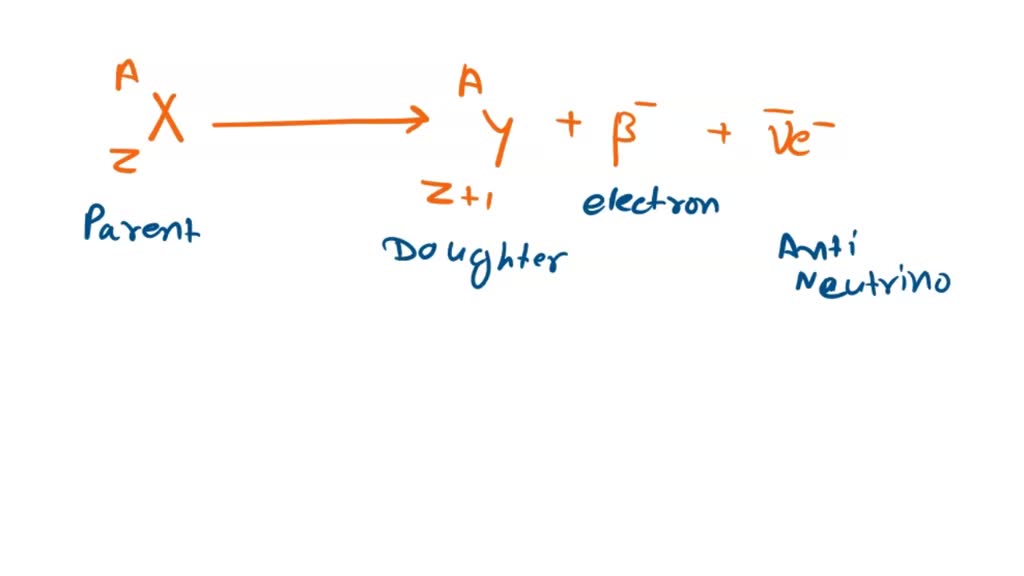 A A
X → Y + β⁻ + ν̄e⁻
Z Z+1
Parent Doughter electron Anti
Neutrino